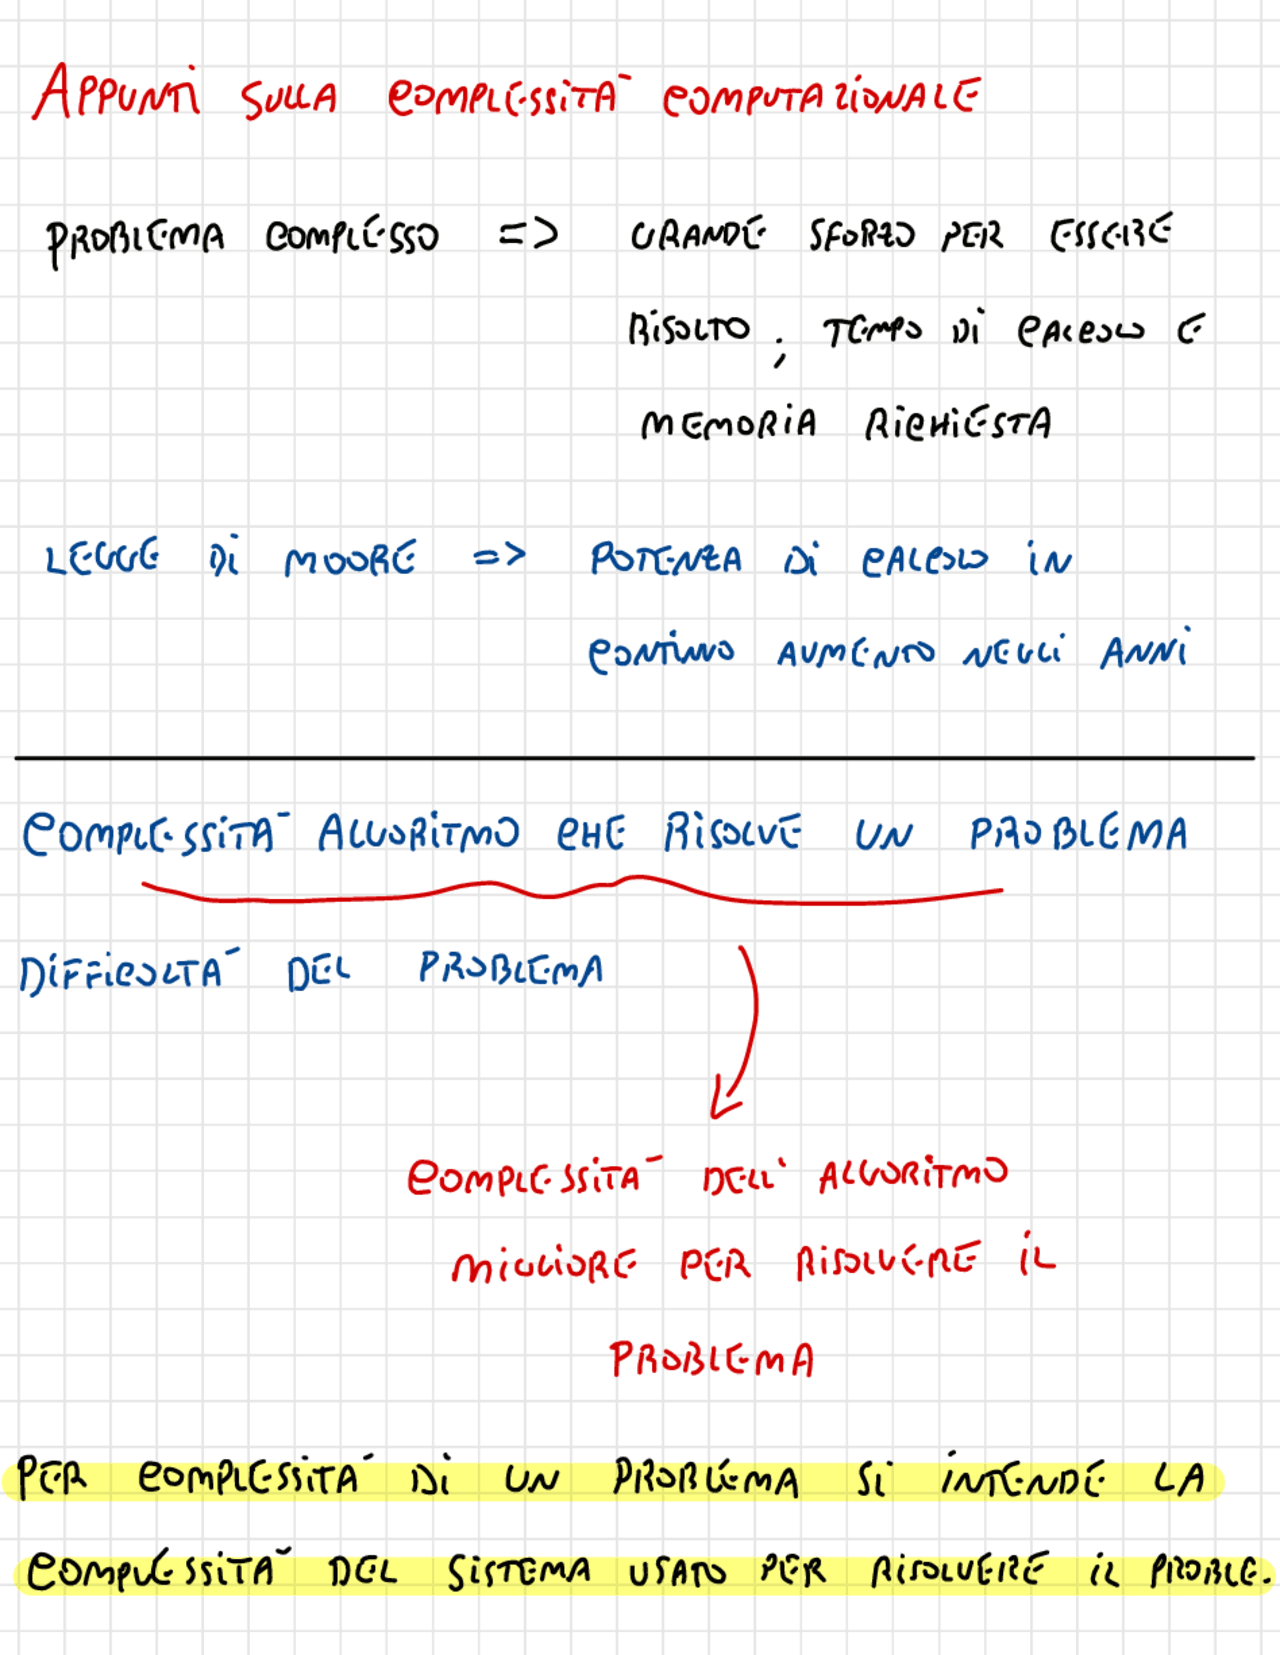 APPUNTI SULLA COMPLESSITÀ COMPUTAZIONALE
PROBLEMA COMPLESSO => GRANDE SFORZO PER ESSERE
RISOLTO; TEMPO DI CALCOLO E
MEMORIA RICHIESTA
LEGGE DI MOORE => POTENZA DI CALCOLO IN
CONTINUO AUMENTO NEGLI ANNI
COMPLESSITÀ ALGORITMO CHE RISOLVE UN PROBLEMA
DIFFICOLTÀ DEL PROBLEMA
COMPLESSITÀ DELL' ALGORITMO
MIGLIORE PER RISOLVERE IL
PROBLEMA
PER COMPLESSITÀ DI UN PROBLEMA SI INTENDE LA
COMPLESSITÀ DEL SISTEMA USATO PER RISOLVERE IL PROBLE.